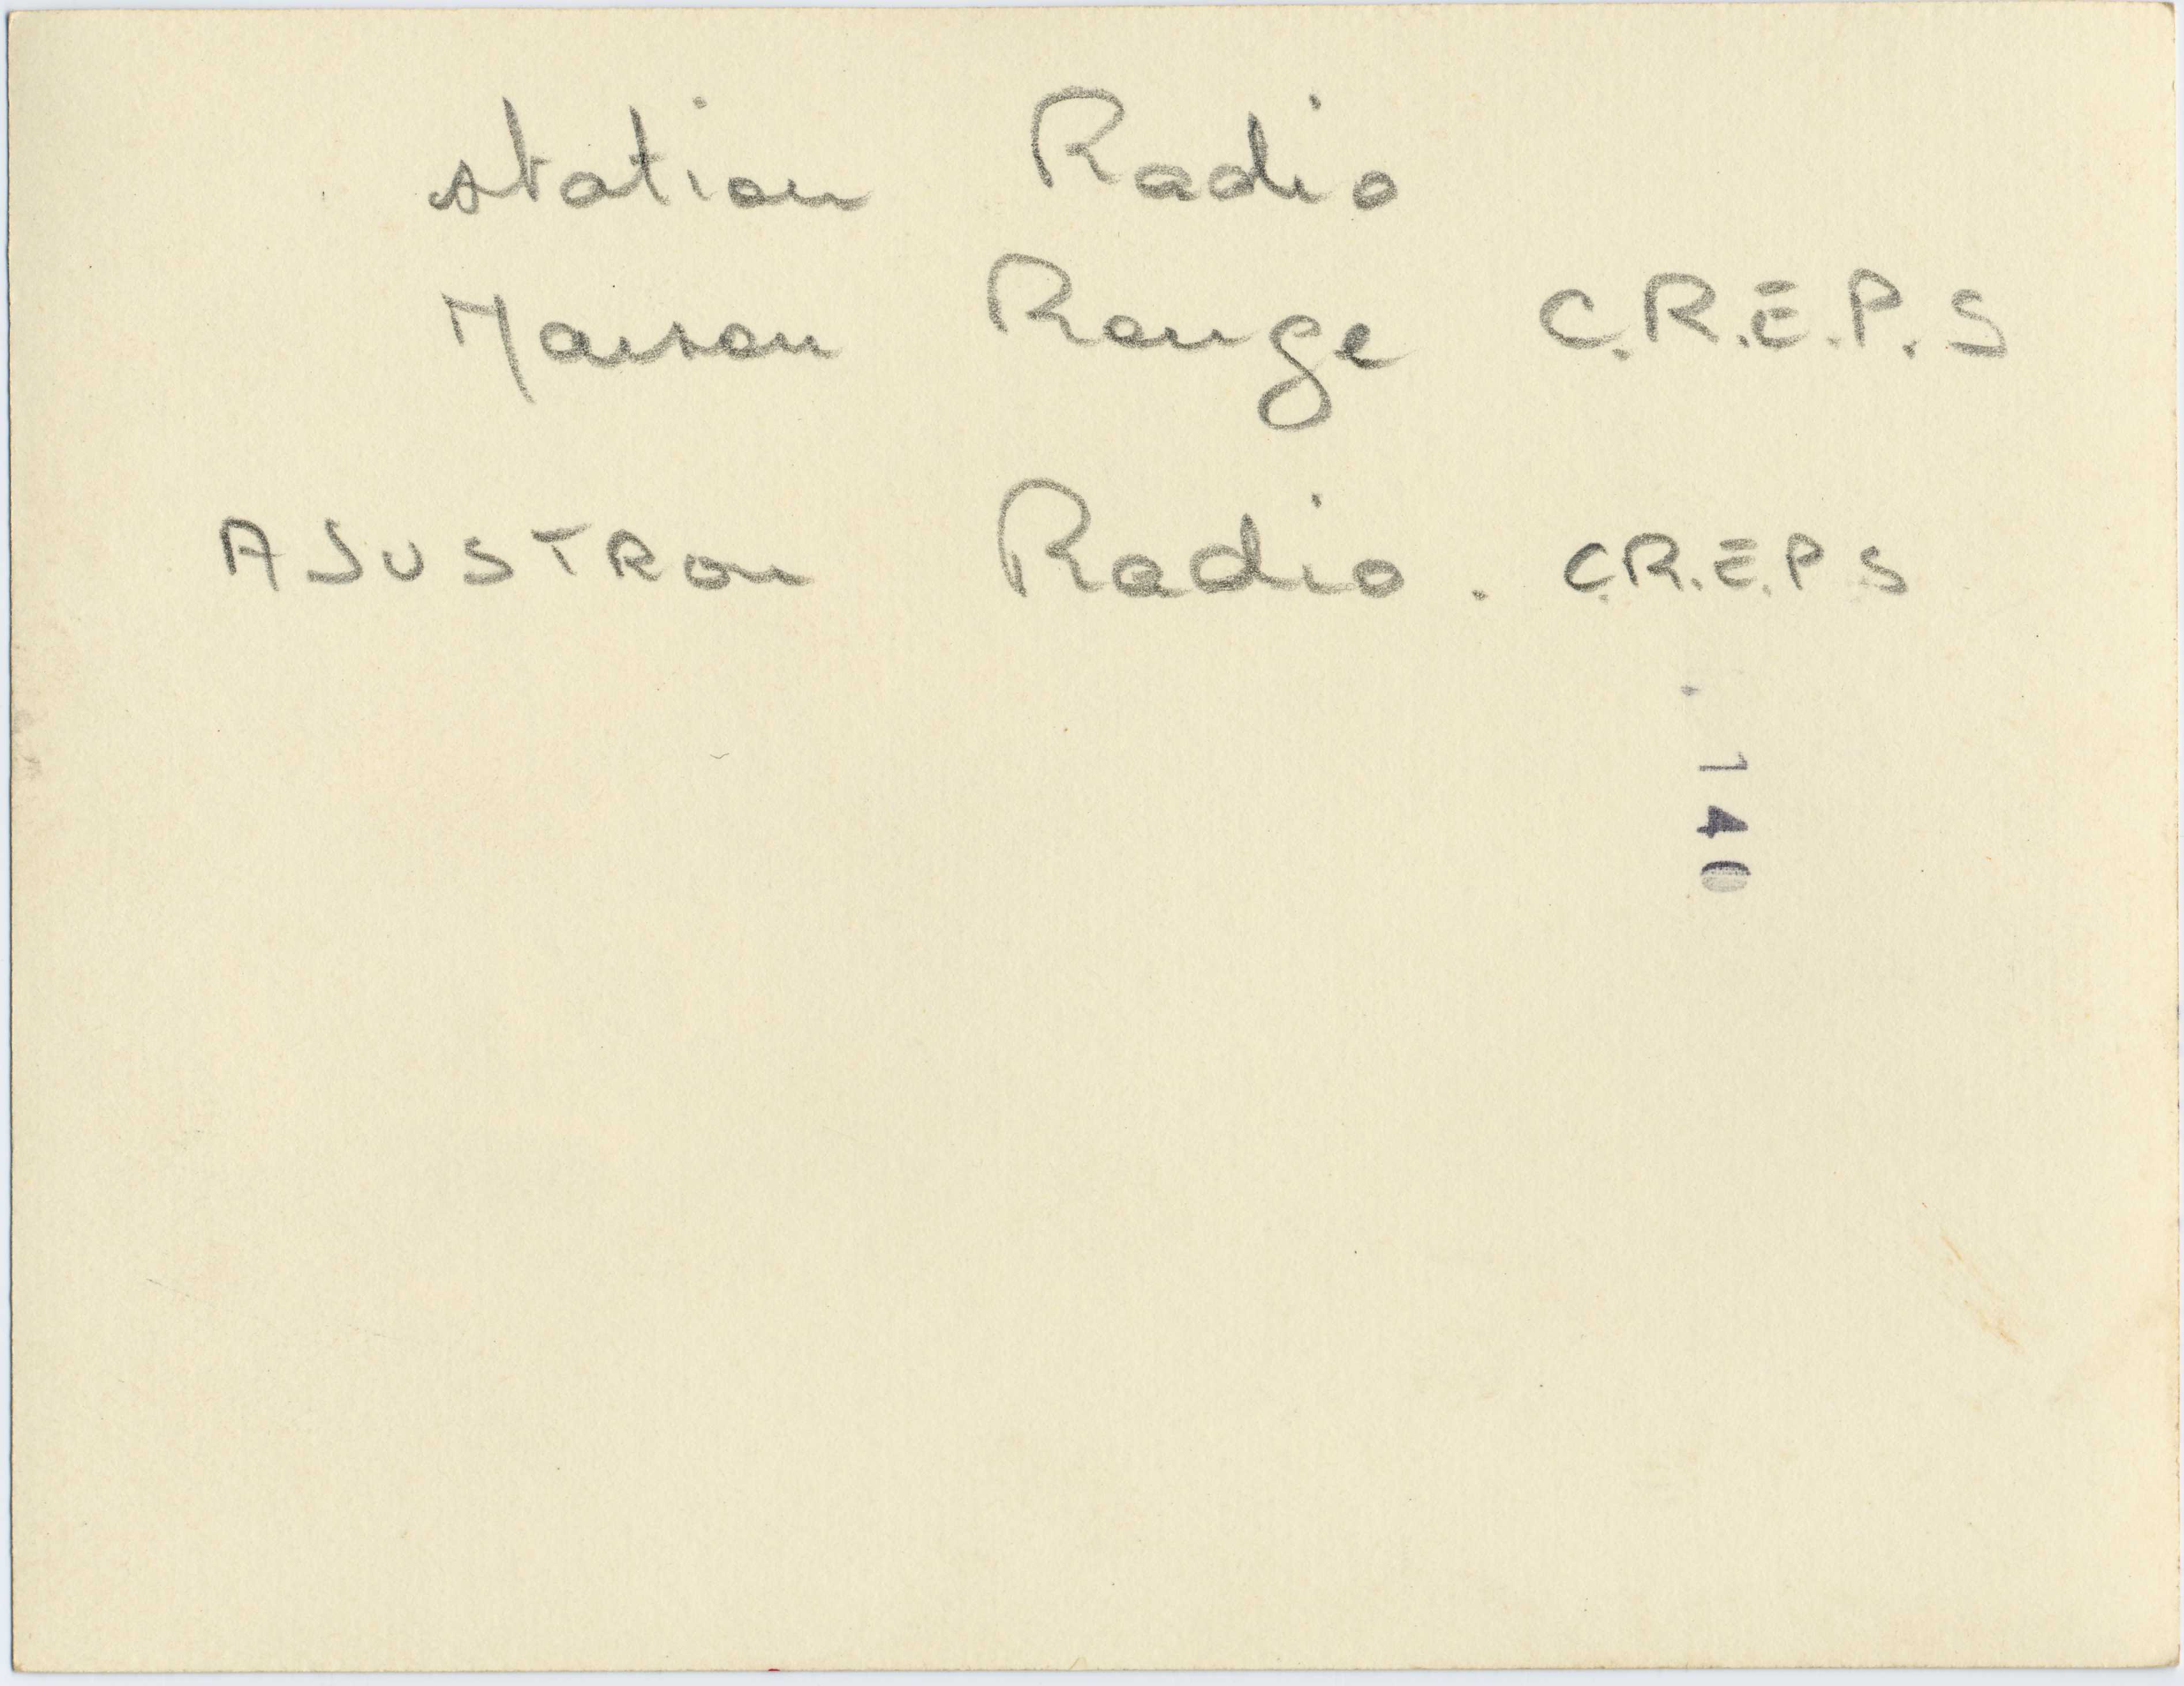 station Radio
Maison Rouge C.R.E.P.S
AJUSTRon Radio. C.R.E.P.S
140